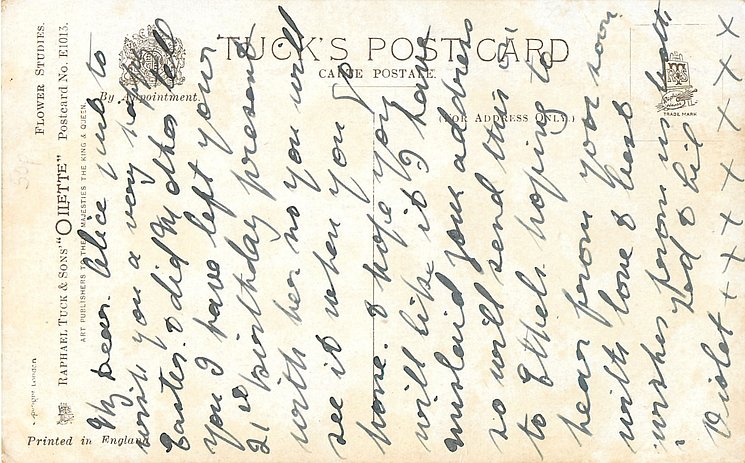 TUCK'S POST CARD
CARTE POSTALE.
By Appointment.
(FOR ADDRESS ONLY.)
TRADE MARK
FLOWER STUDIES.
RAPHAEL TUCK & SONS' "OILETTE" Postcard No. E1013.
ART PUBLISHERS TO THEIR MAJESTIES THE KING & QUEEN.
Printed in England
My Dear Alice just to
wish you a very happy
Easter. & did Mother tell
you I have left your
21st birthday present
with her so you will
see it when you go
home. I hope you
will like it I have
mislaid your address
so will send this on
to Ethels hoping to
hear from you soon
with love & best
wishes from us both
Ted & Lil
Violet + x x x x x x x